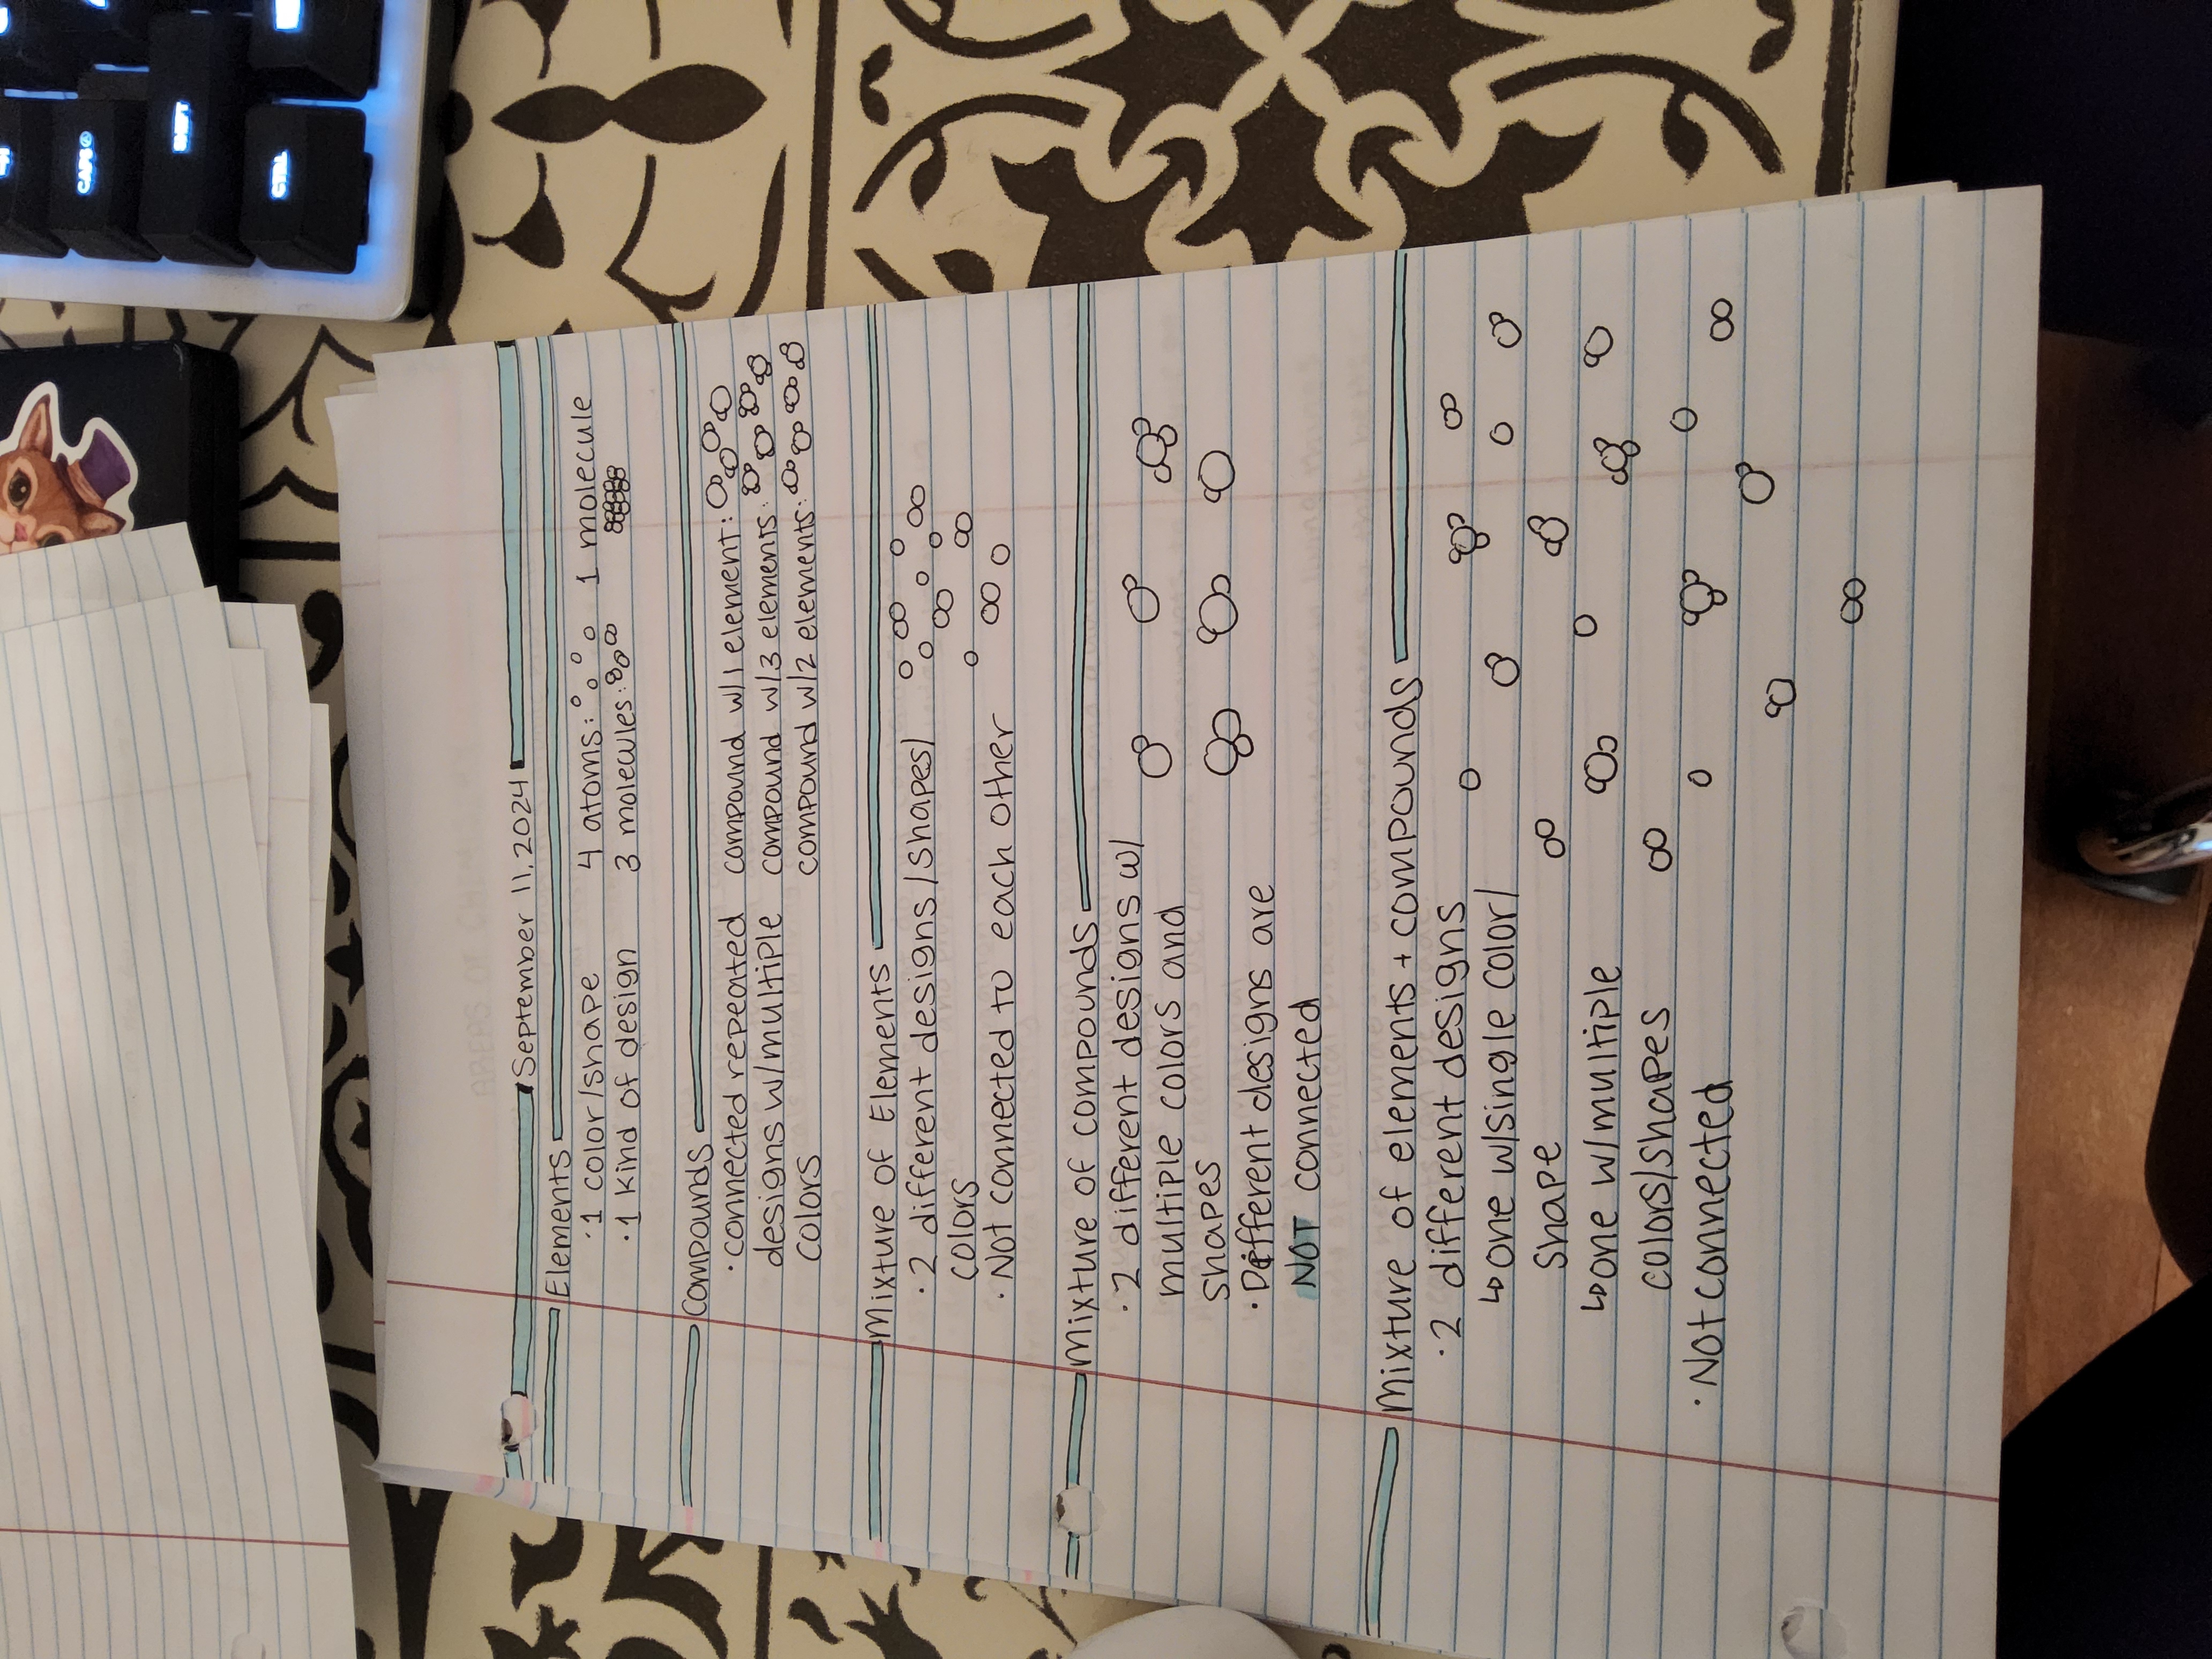 CAPS
SHIFT
CTRL
AREAS OF CHEMISTRY
September 11, 2024
Elements
·1 color/shape 4 atoms: 1 molecule
·1 kind of design 3 molecules:
Compounds
·connected repeated compound w/1 element:
designs w/multiple compound w/3 elements:
colors compound w/2 elements:
Mixture of Elements
·2 different designs/shapes/
colors
·Not connected to each other
Mixture of compounds
·2 different designs w/
multiple colors and
shapes
·Different designs are
NOT connected
Mixture of elements + compounds
·2 different designs
↳one w/single color/
shape
↳one w/multiple
colors/shapes
·Not connected